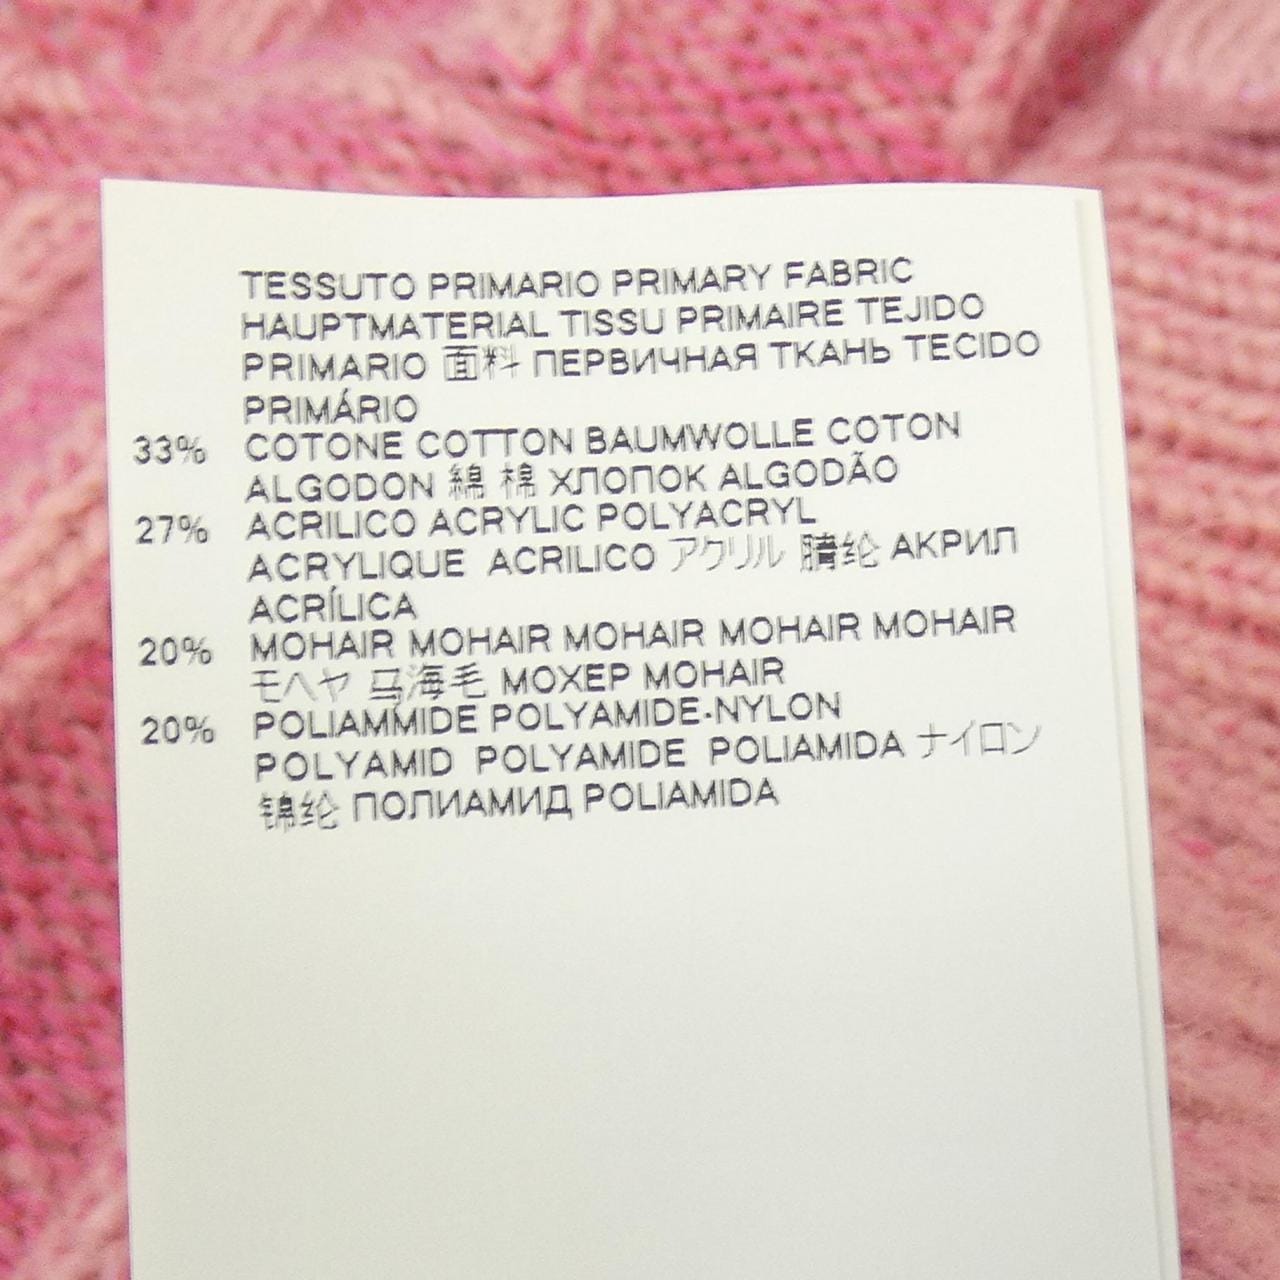 TESSUTO PRIMARIO PRIMARY FABRIC
HAUPTMATERIAL TISSU PRIMAIRE TEJIDO
PRIMARIO 面料 ПЕРВИЧНАЯ ТКАНЬ TECIDO
PRIMÁRIO
33% COTONE COTTON BAUMWOLLE COTON
ALGODON 綿 棉 ХЛОПОК ALGODÃO
27% ACRILICO ACRYLIC POLYACRYL
ACRYLIQUE ACRILICO アクリル 腈纶 АКРИЛ
ACRÍLICA
20% MOHAIR MOHAIR MOHAIR MOHAIR MOHAIR
モヘヤ 马海毛 МОХЕР MOHAIR
20% POLIAMMIDE POLYAMIDE-NYLON
POLYAMID POLYAMIDE POLIAMIDA ナイロン
锦纶 ПОЛИАМИД POLIAMIDA